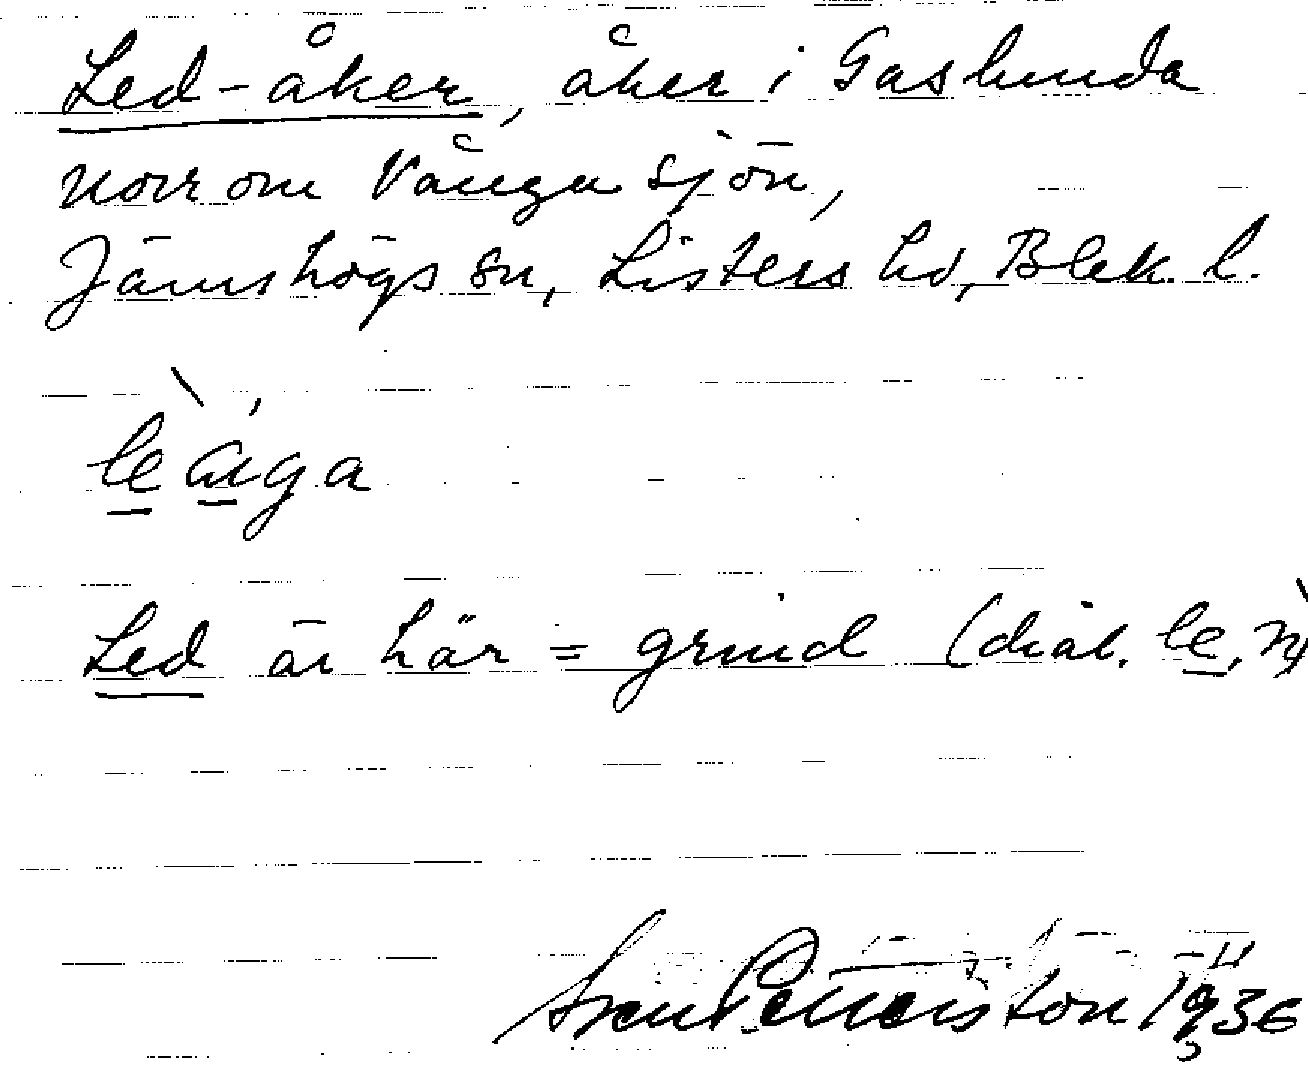 Led-åker, åker i Gaslunda
norr om Vånga sjön,
Jämshögs sn, Listers hd, Blek. l.
lè ága
Led är här = grind (dial. le, n)
Sven Pettersson 1936